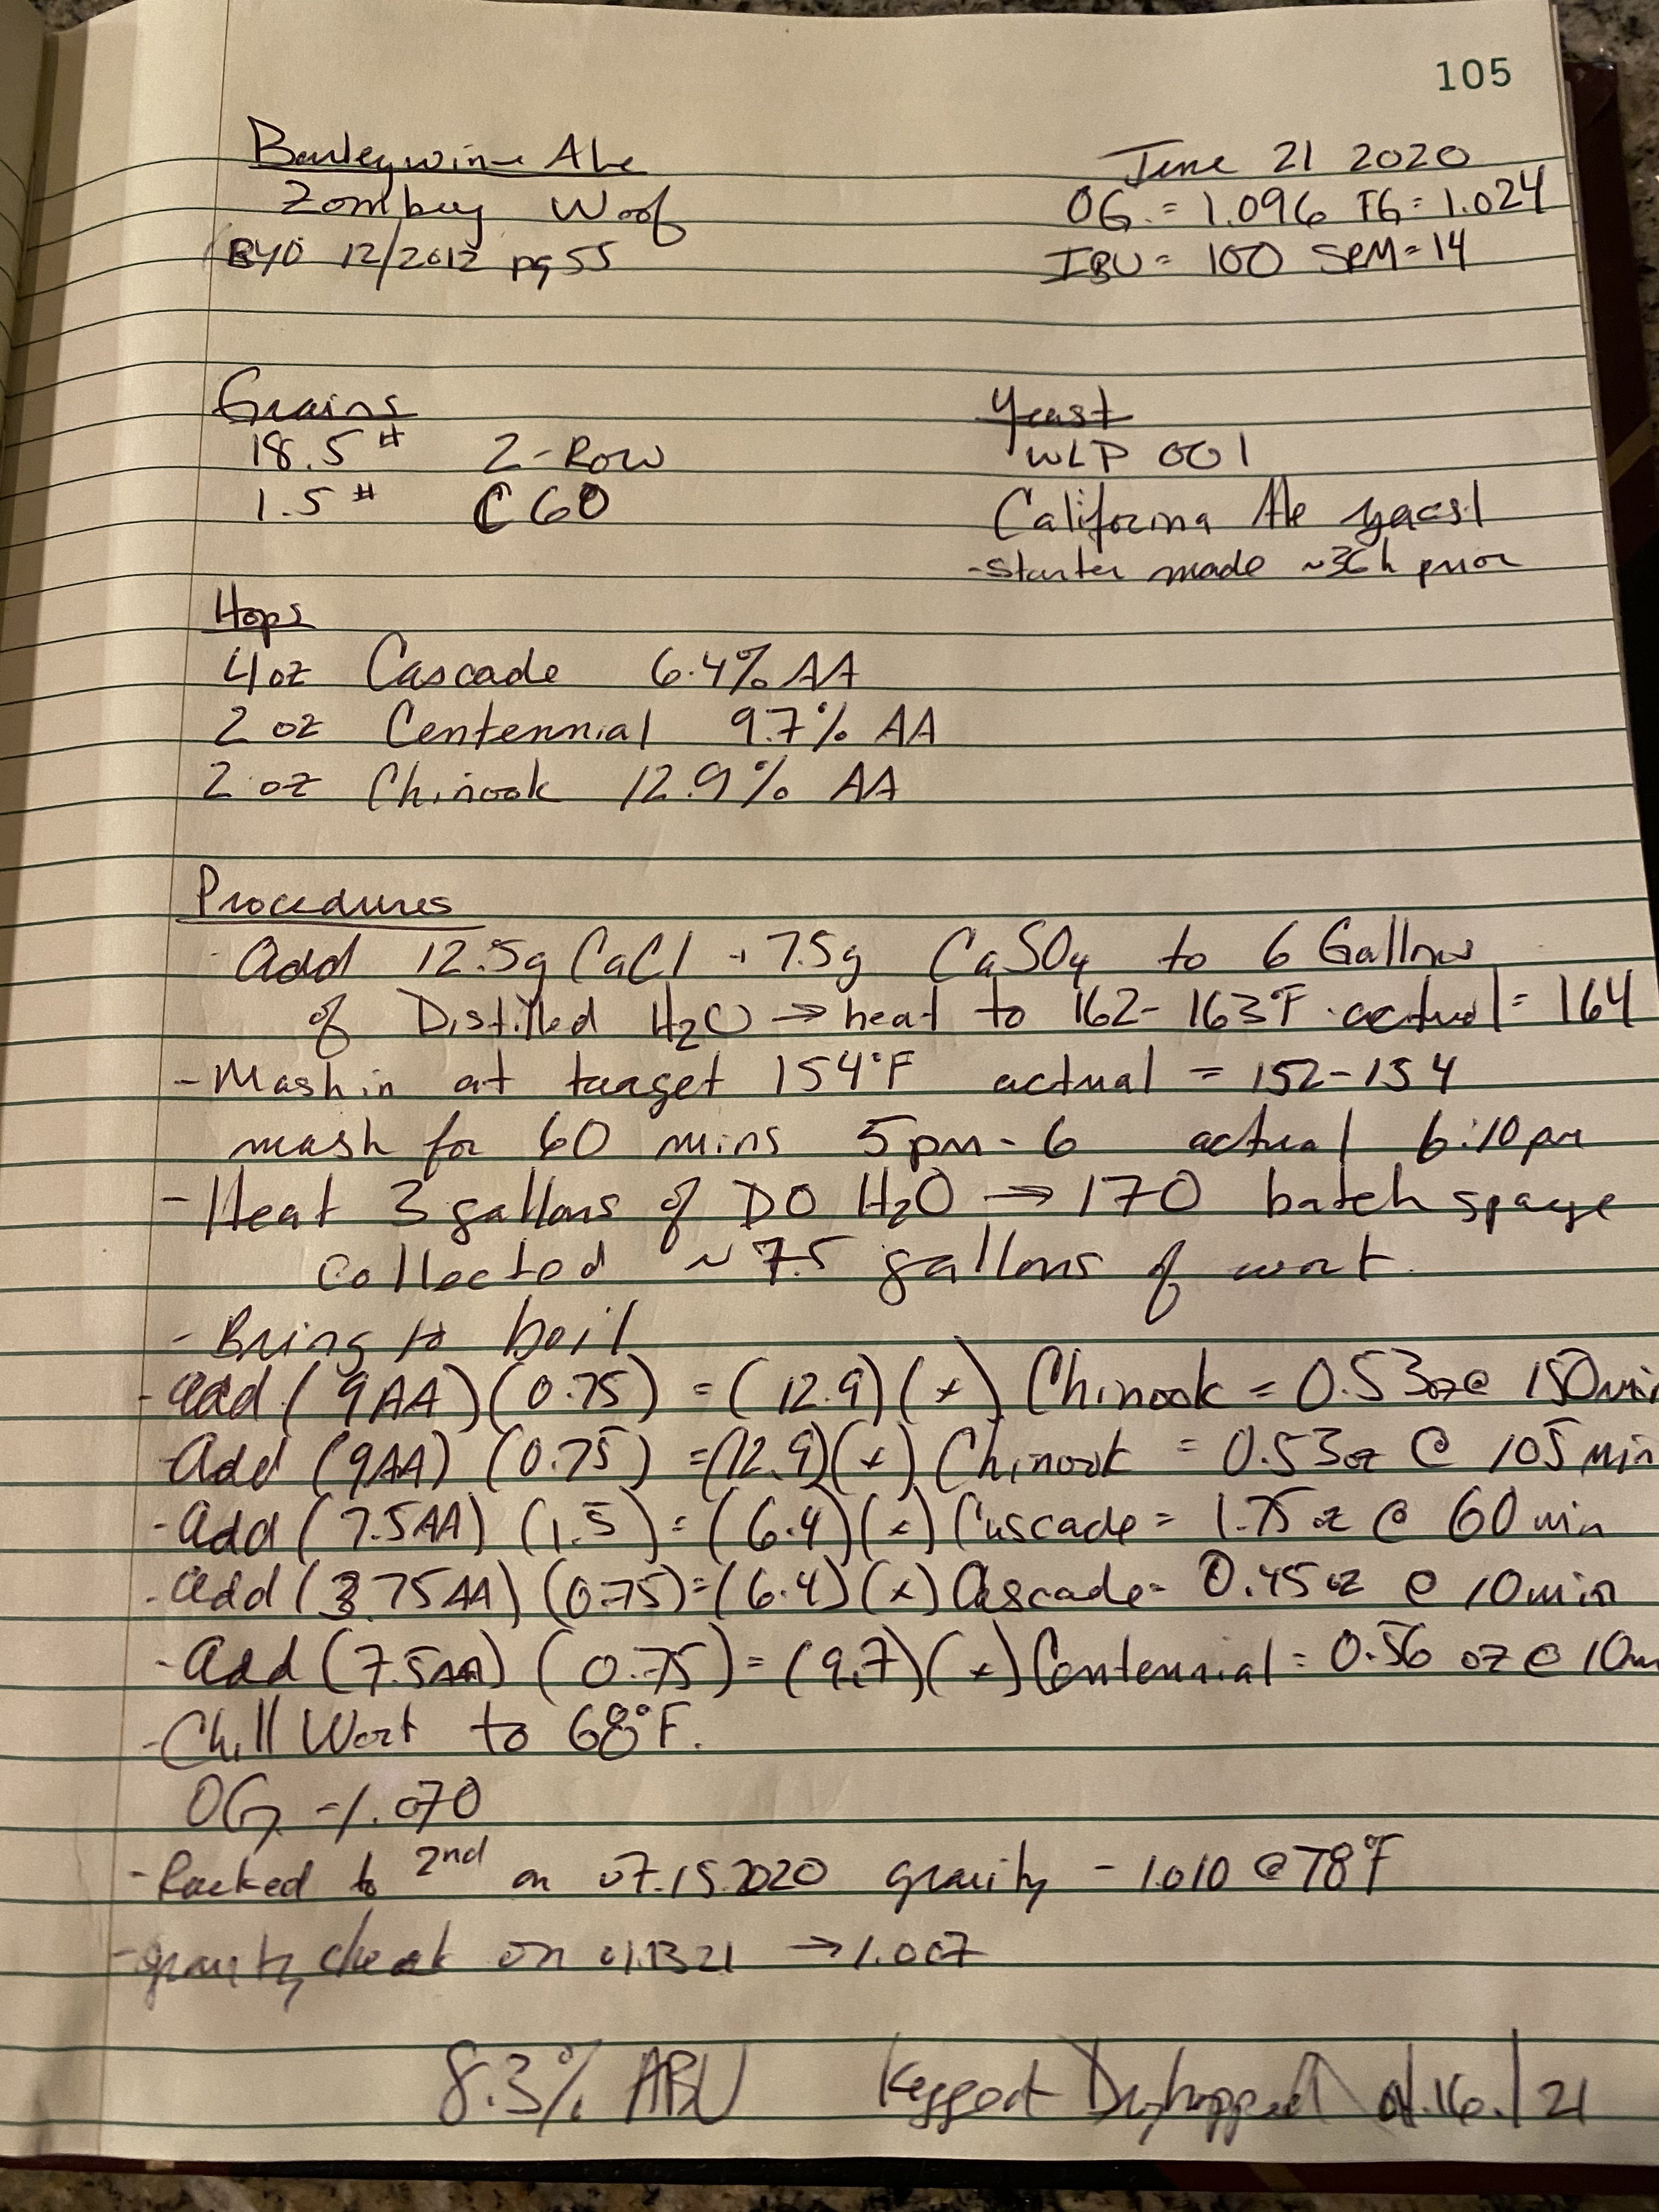 105
Barleywine Ale
June 21 2020
Zomby Woof
OG = 1.096 FG = 1.024
BYO 12/2012 pg 55
IBU = 100 SRM = 14
Grains
Yeast
18.5 # 2-Row
WLP 001
1.5 # C60
California Ale yeast
- starter made ~36h prior
Hops
4 oz Cascade 6.4% AA
2 oz Centennial 9.7% AA
2 oz Chinook 12.9% AA
Procedures
- Add 12.5g CaCl + 7.5g CaSO4 to 6 Gallons
of Distilled H2O → heat to 162-163°F actual = 164
- Mash in at target 154°F actual = 152-154
mash for 60 mins 5pm - 6 actual 6:10pm
- Heat 3 gallons of DO H2O → 170 batch sparge
collected ~7.5 gallons of wort.
- Bring to boil
- Add (9AA)(0.75) = (12.9)(x) Chinook = 0.53oz @ 150min
- Add (9AA) (0.75) = (12.9)(x) Chinook = 0.53oz @ 105 min
- Add (7.5AA) (1.5) = (6.4)(x) Cascade = 1.75 oz @ 60 min
- Add (3.75AA) (0.75) = (6.4)(x) Cascade = 0.45oz @ 10min
- Add (7.5AA) (0.75) = (9.7)(x) Centennial = 0.56 oz @ 10m
- Chill Wort to 68°F.
OG = 1.070
- Racked to 2nd on 07.15.2020 gravity - 1.010 @ 78°F
- gravity check on 01.13.21 → 1.007
8.3% ABV Kegged + Dryhopped 01.16.21